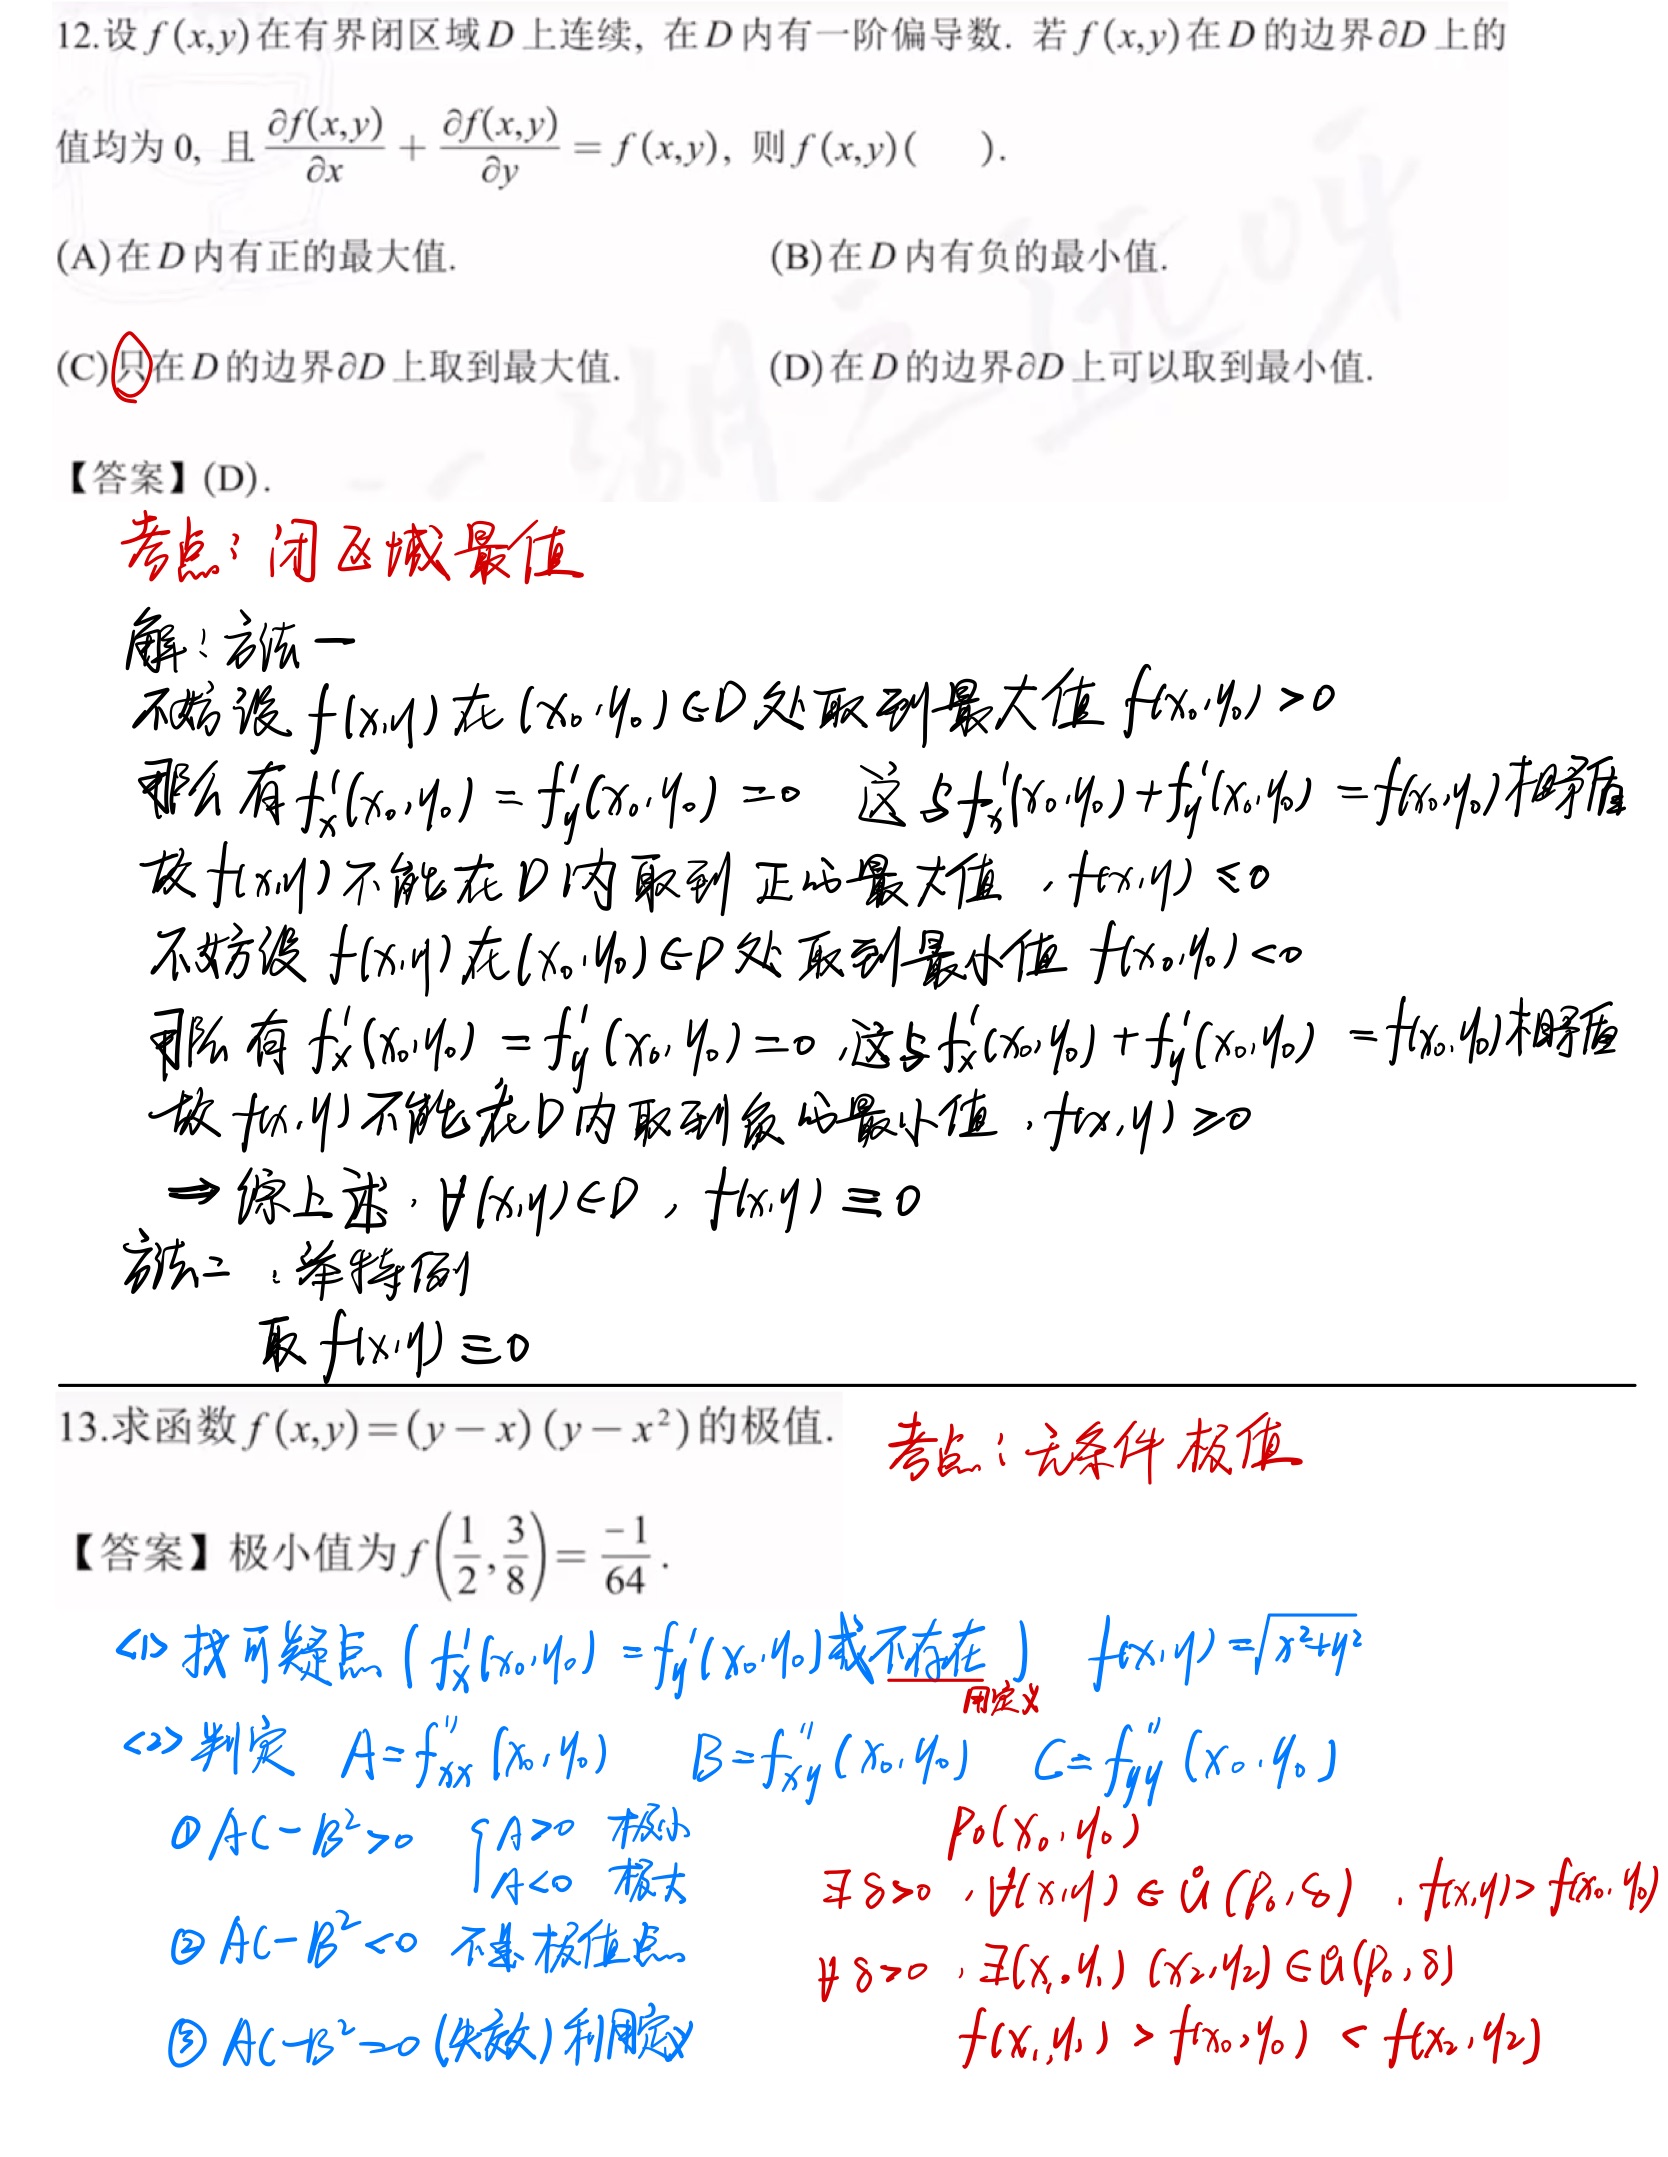 12.设f(x,y)在有界闭区域D上连续, 在D内有一阶偏导数. 若f(x,y)在D的边界∂D上的
值均为0, 且 ∂f(x,y)/∂x + ∂f(x,y)/∂y = f(x,y), 则f(x,y)(  ).
(A)在D内有正的最大值. (B)在D内有负的最小值.
(C)只在D的边界∂D上取到最大值. (D)在D的边界∂D上可以取到最小值.
【答案】(D).
考点:闭区域最值
解:方法一
不妨设 f(x,y)在(x₀,y₀)∈D处取到最大值 f(x₀,y₀)>0
那么有 fx'(x₀,y₀) = fy'(x₀,y₀) = 0 这与fx'(x₀,y₀)+fy'(x₀,y₀) = f(x₀,y₀)相矛盾
故 f(x,y)不能在D内取到正的最大值, f(x,y)≤0
不妨设 f(x,y)在(x₀,y₀)∈D处取到最小值 f(x₀,y₀)<0
那么有 fx'(x₀,y₀) = fy'(x₀,y₀)=0,这与fx'(x₀,y₀)+fy'(x₀,y₀) = f(x₀,y₀)相矛盾
故 f(x,y)不能在D内取到负的最小值, f(x,y)≥0
⇒ 综上述, ∀(x,y)∈D, f(x,y)≡0
方法二:举特例
取 f(x,y)≡0
13.求函数f(x,y)=(y-x)(y-x²)的极值. 考点:无条件极值
【答案】极小值为f(1/2,3/8)=-1/64.
<1> 找可疑点(fx'(x₀,y₀)=fy'(x₀,y₀)或不存在) f(x,y)=√(x²+y²)
用定义
<2> 判定 A=fxx''(x₀,y₀) B=fxy''(x₀,y₀) C=fyy''(x₀,y₀)
① AC-B²>0 { A>0 极小 P₀(x₀,y₀)
A<0 极大 ∃δ>0, ∀(x,y)∈Ů(P₀,δ), f(x,y)>f(x₀,y₀)
② AC-B²<0 不是极值点 ∀δ>0, ∃(x₁,y₁)(x₂,y₂)∈Ů(P₀,δ)
③ AC-B²=0(失效)利用定义 f(x₁,y₁)>f(x₀,y₀)<f(x₂,y₂)